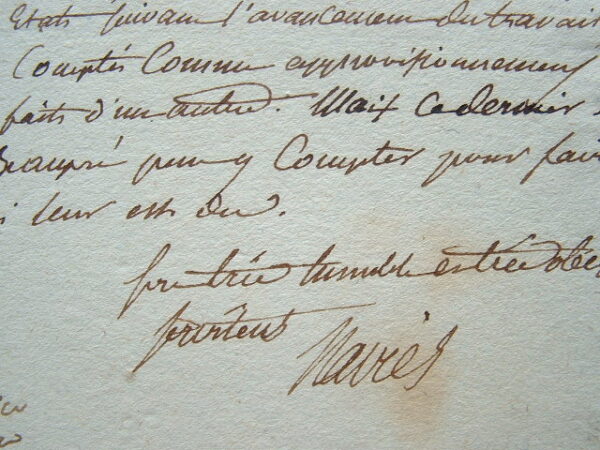 Etats suivant l'avancement du travail
Comptés Comme approvisionnement
faits d'un autre. Mais ce dernier
peu y Compter pour fair
i leur est du.
très humble et très obei
serviteur
Naviés